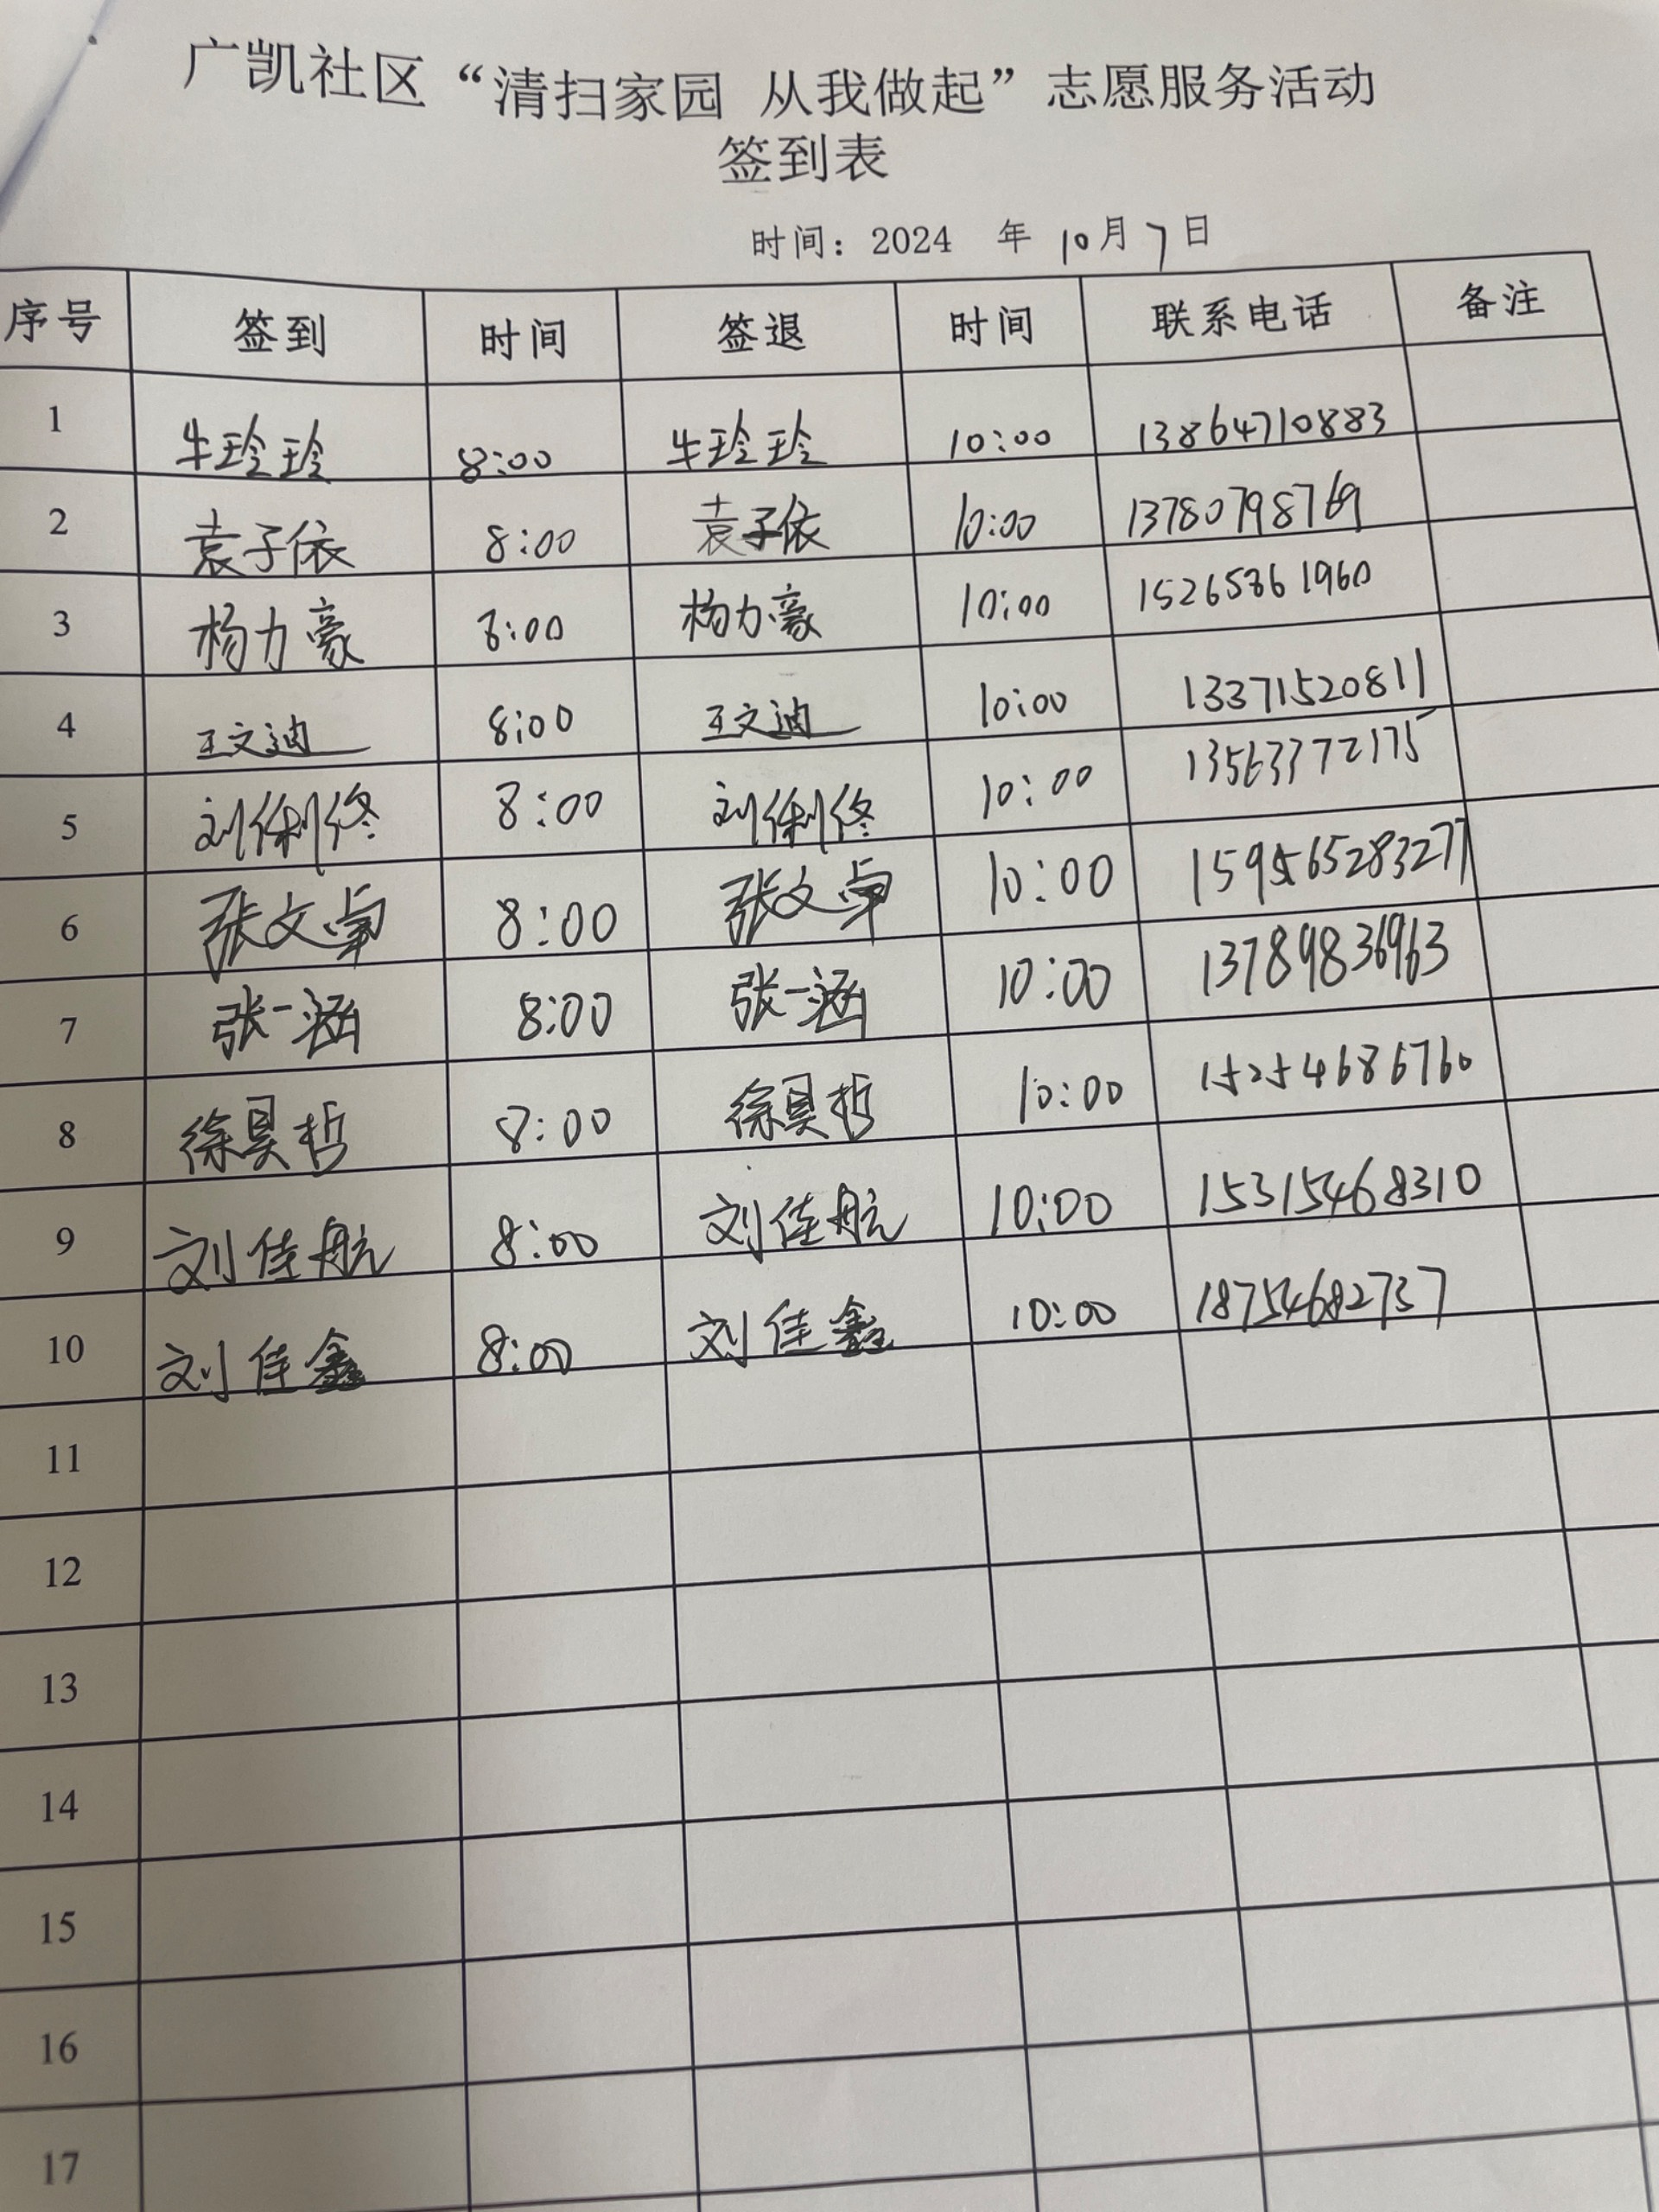 广凯社区“清扫家园 从我做起”志愿服务活动
签到表
时间：2024 年 10月7日
序号 签到 时间 签退 时间 联系电话 备注
1 牛玲玲 8:00 牛玲玲 10:00 13864710883
2 袁子依 8:00 袁子依 10:00 13780798769
3 杨力豪 8:00 杨力豪 10:00 15265861960
4 王文迪 8:00 王文迪 10:00 13371520811
5 8:00 10:00 13563372175
6 张文卓 8:00 张文卓 10:00
7 张一涵 8:00 张一涵 10:00 13789836963
8 徐昊哲 8:00 徐昊哲 10:00 15254686760
9 刘佳航 8:00 刘佳航 10:00 15315468310
10 刘佳鑫 8:00 刘佳鑫 10:00 18754682737
11
12
13
14
15
16
17